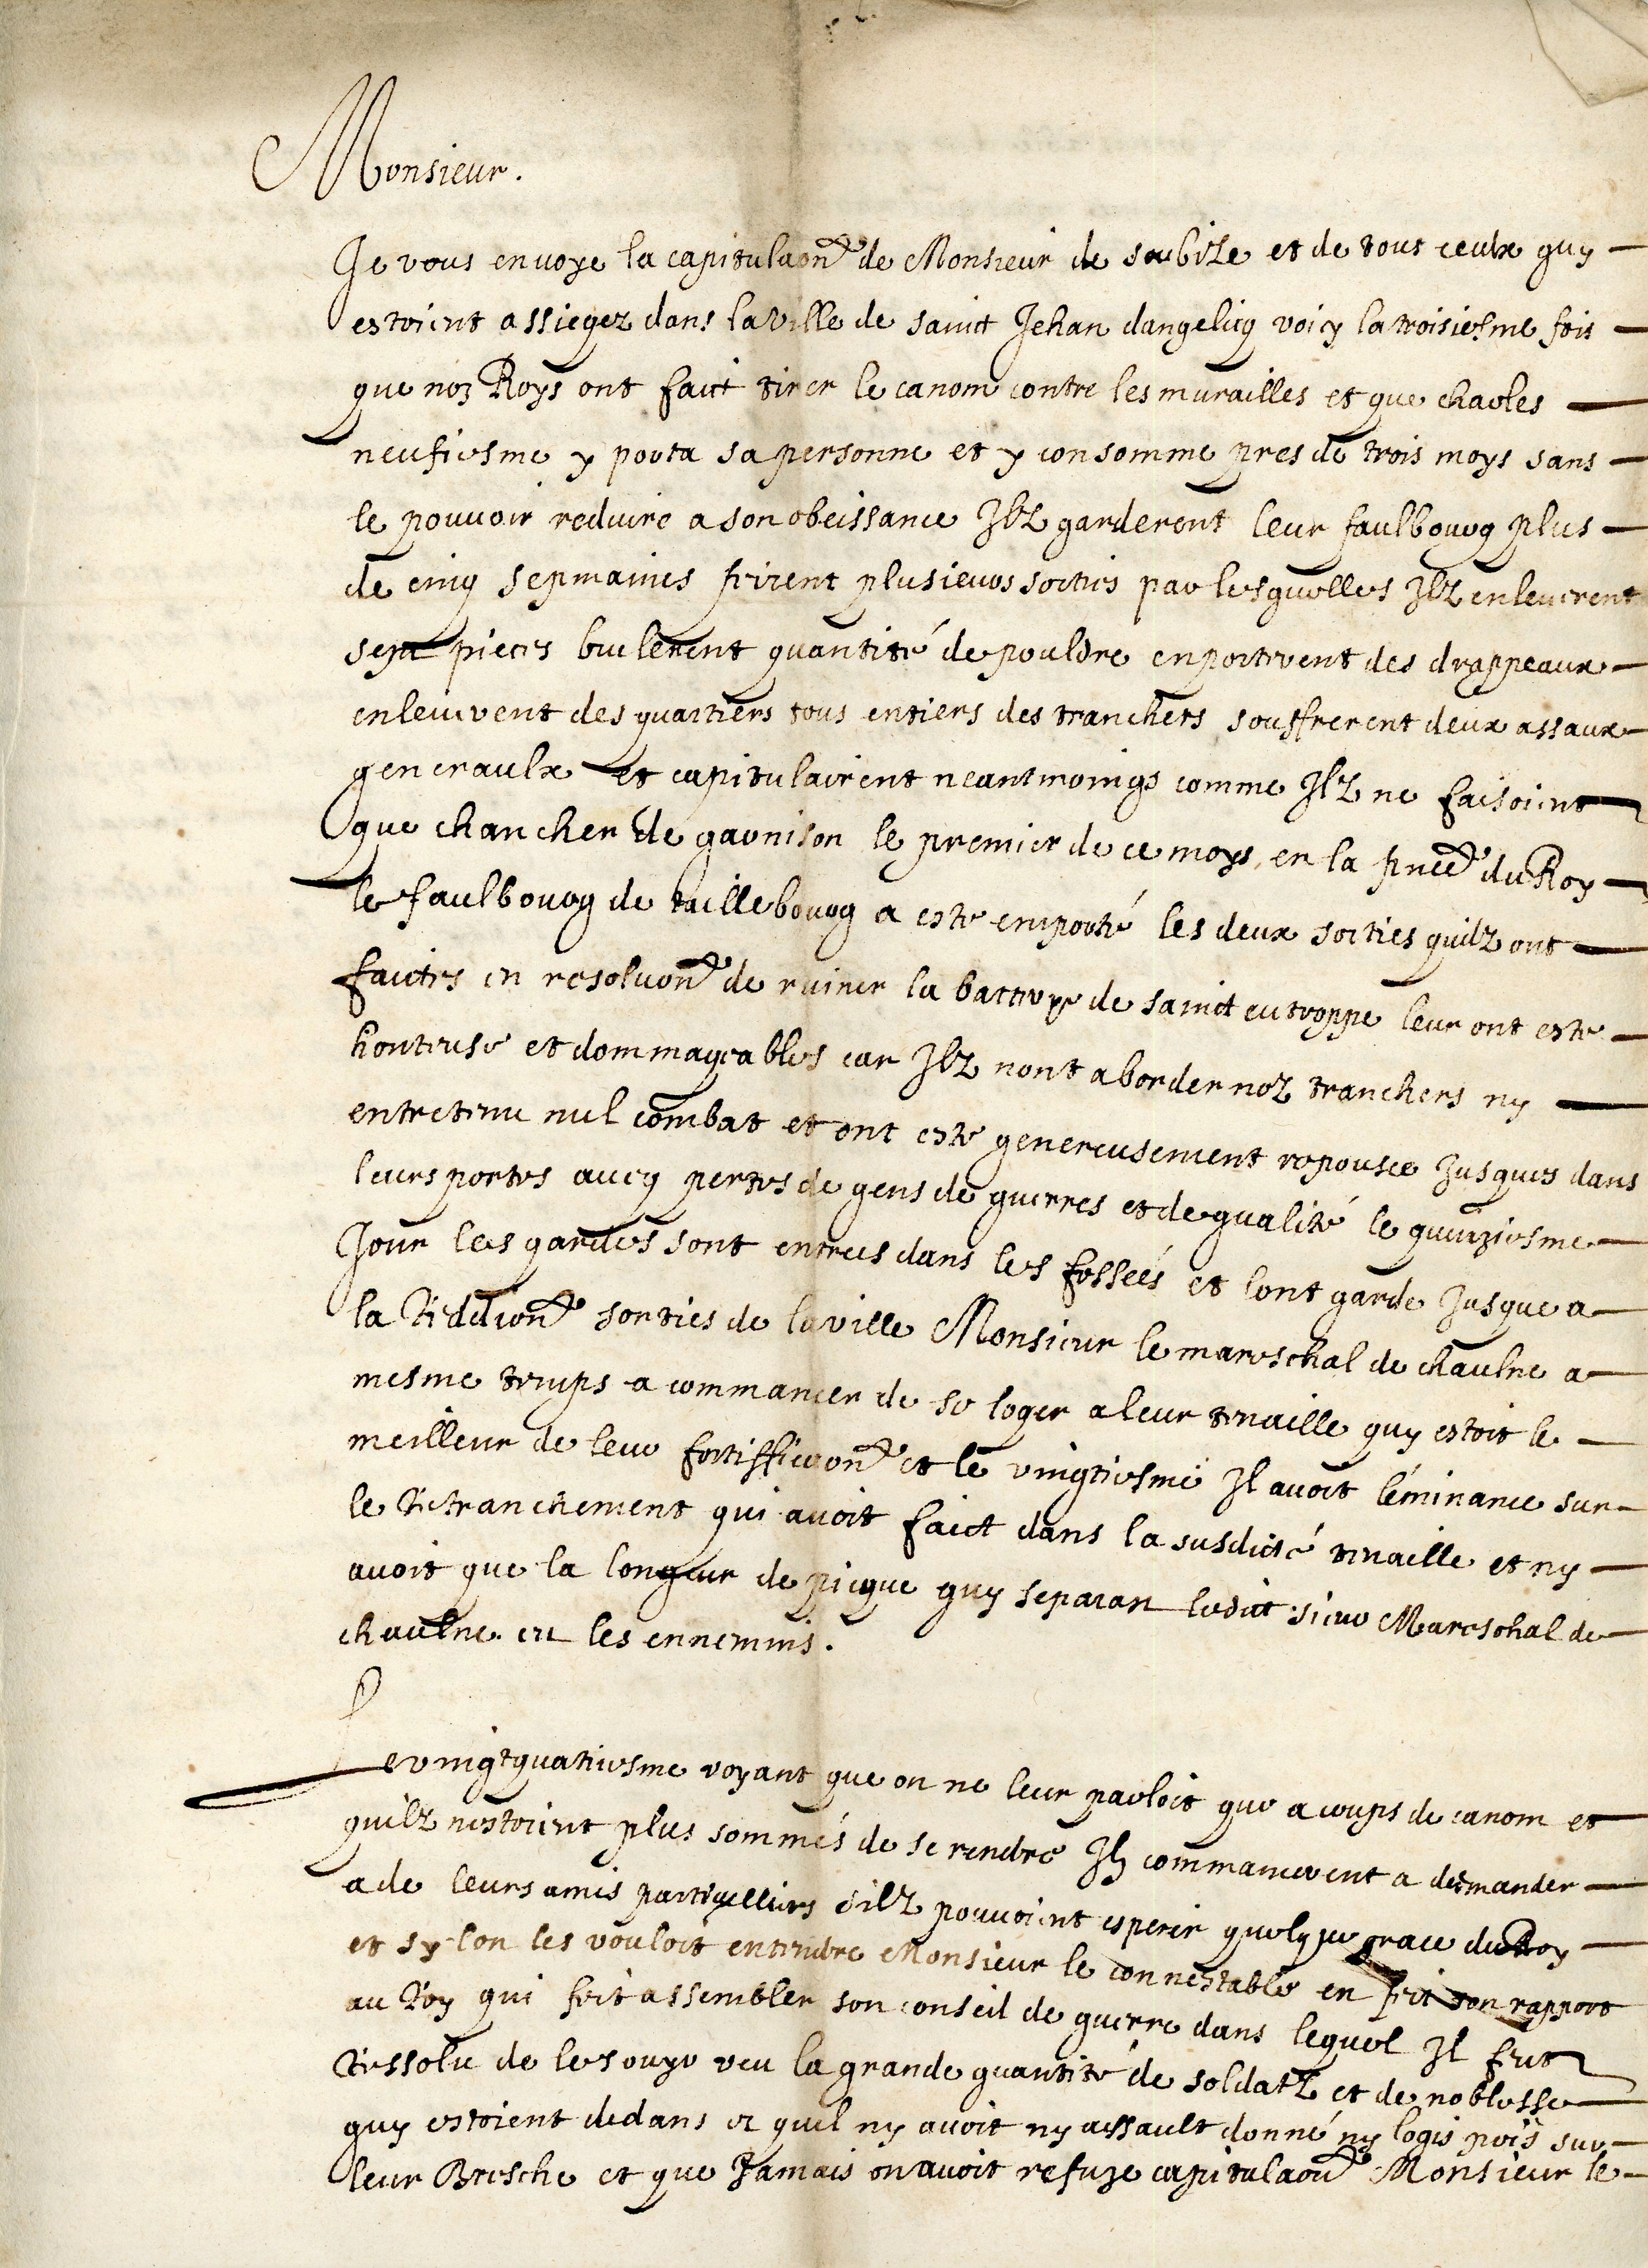 Monsieur.
Je vous envoye la capitulaon de Monsieur de soubize et de tous ceulx quy
estoient assiegez dans la ville de sainct Jehan dangelicq voicy la troisiesme fois
que noz Roys ont faict tirer le canom contre les murailles et que charles
neufiesme y porta sa personne et y consomme pres de trois moys sans
le pouvoir reduire a son obeissance Ilz garderent leur faulbourg plus
de cinq sepmaines firent plusieurs sorties par lesquelles Ilz enleverent
sept pieces brulerent quantité de pouldre enporterent des drappeaux
enleverent des quartiers tous entiers des tranchers souffrerent deux assaux
generaulx et capitulairent neantmoings comme Ilz ne faisoient
que chancher de garnison le premier de ce moys en la pñce du Roy
le faulbourg de taillebourg a este emporté les deux sorties quilz ont
faictes en resoluon de ruiner la batterye de sainct eutroppe leur ont este
honteuse et dommageables car Ilz nont aborder noz tranchers ny
entretenu nul combat et ont este genereusement repousee Jusques dans
leurs portes avecq pertes de gens de guerres et de qualité le quinziesme
Jour les gardes sont entrees dans les fosseés et lont garde Jusque a
la Redition sorties de la ville Monsieur le mareschal de chaulne a
mesme temps a commancer de se loger a leur tenaille quy estoit le
meilleur de leur fortifficaon et le vingtiesme Il avoit léminance sur
le Retranchement qui avoit faict dans la susdicté tenaille et ny
avoit que la longeur de picque quy separan ledict sieur Mareschal de
chaulne et les ennemins.
Le vingtquatriesme voyant que on ne leur parloit que a coups de canom et
quilz nestoient plus sommés de se rendre Ilz commancerent a demander
a de leurs amis particulliers silz pouvoient esperer quelque grace du Roy
et sy lon les vouloit entendre Monsieur le connestable en feit son rapport
au Roy qui feit assembler son conseil de guerre dans lequel Il feut
Ressolu de les ouyr veu la grande quantité de soldatz et de noblesse
quy estoient dedans et quil ny avoit ny assault donné ny logis pris sur
leur Bresche et que Jamais on avoit refuze capitulaon Monsieur le